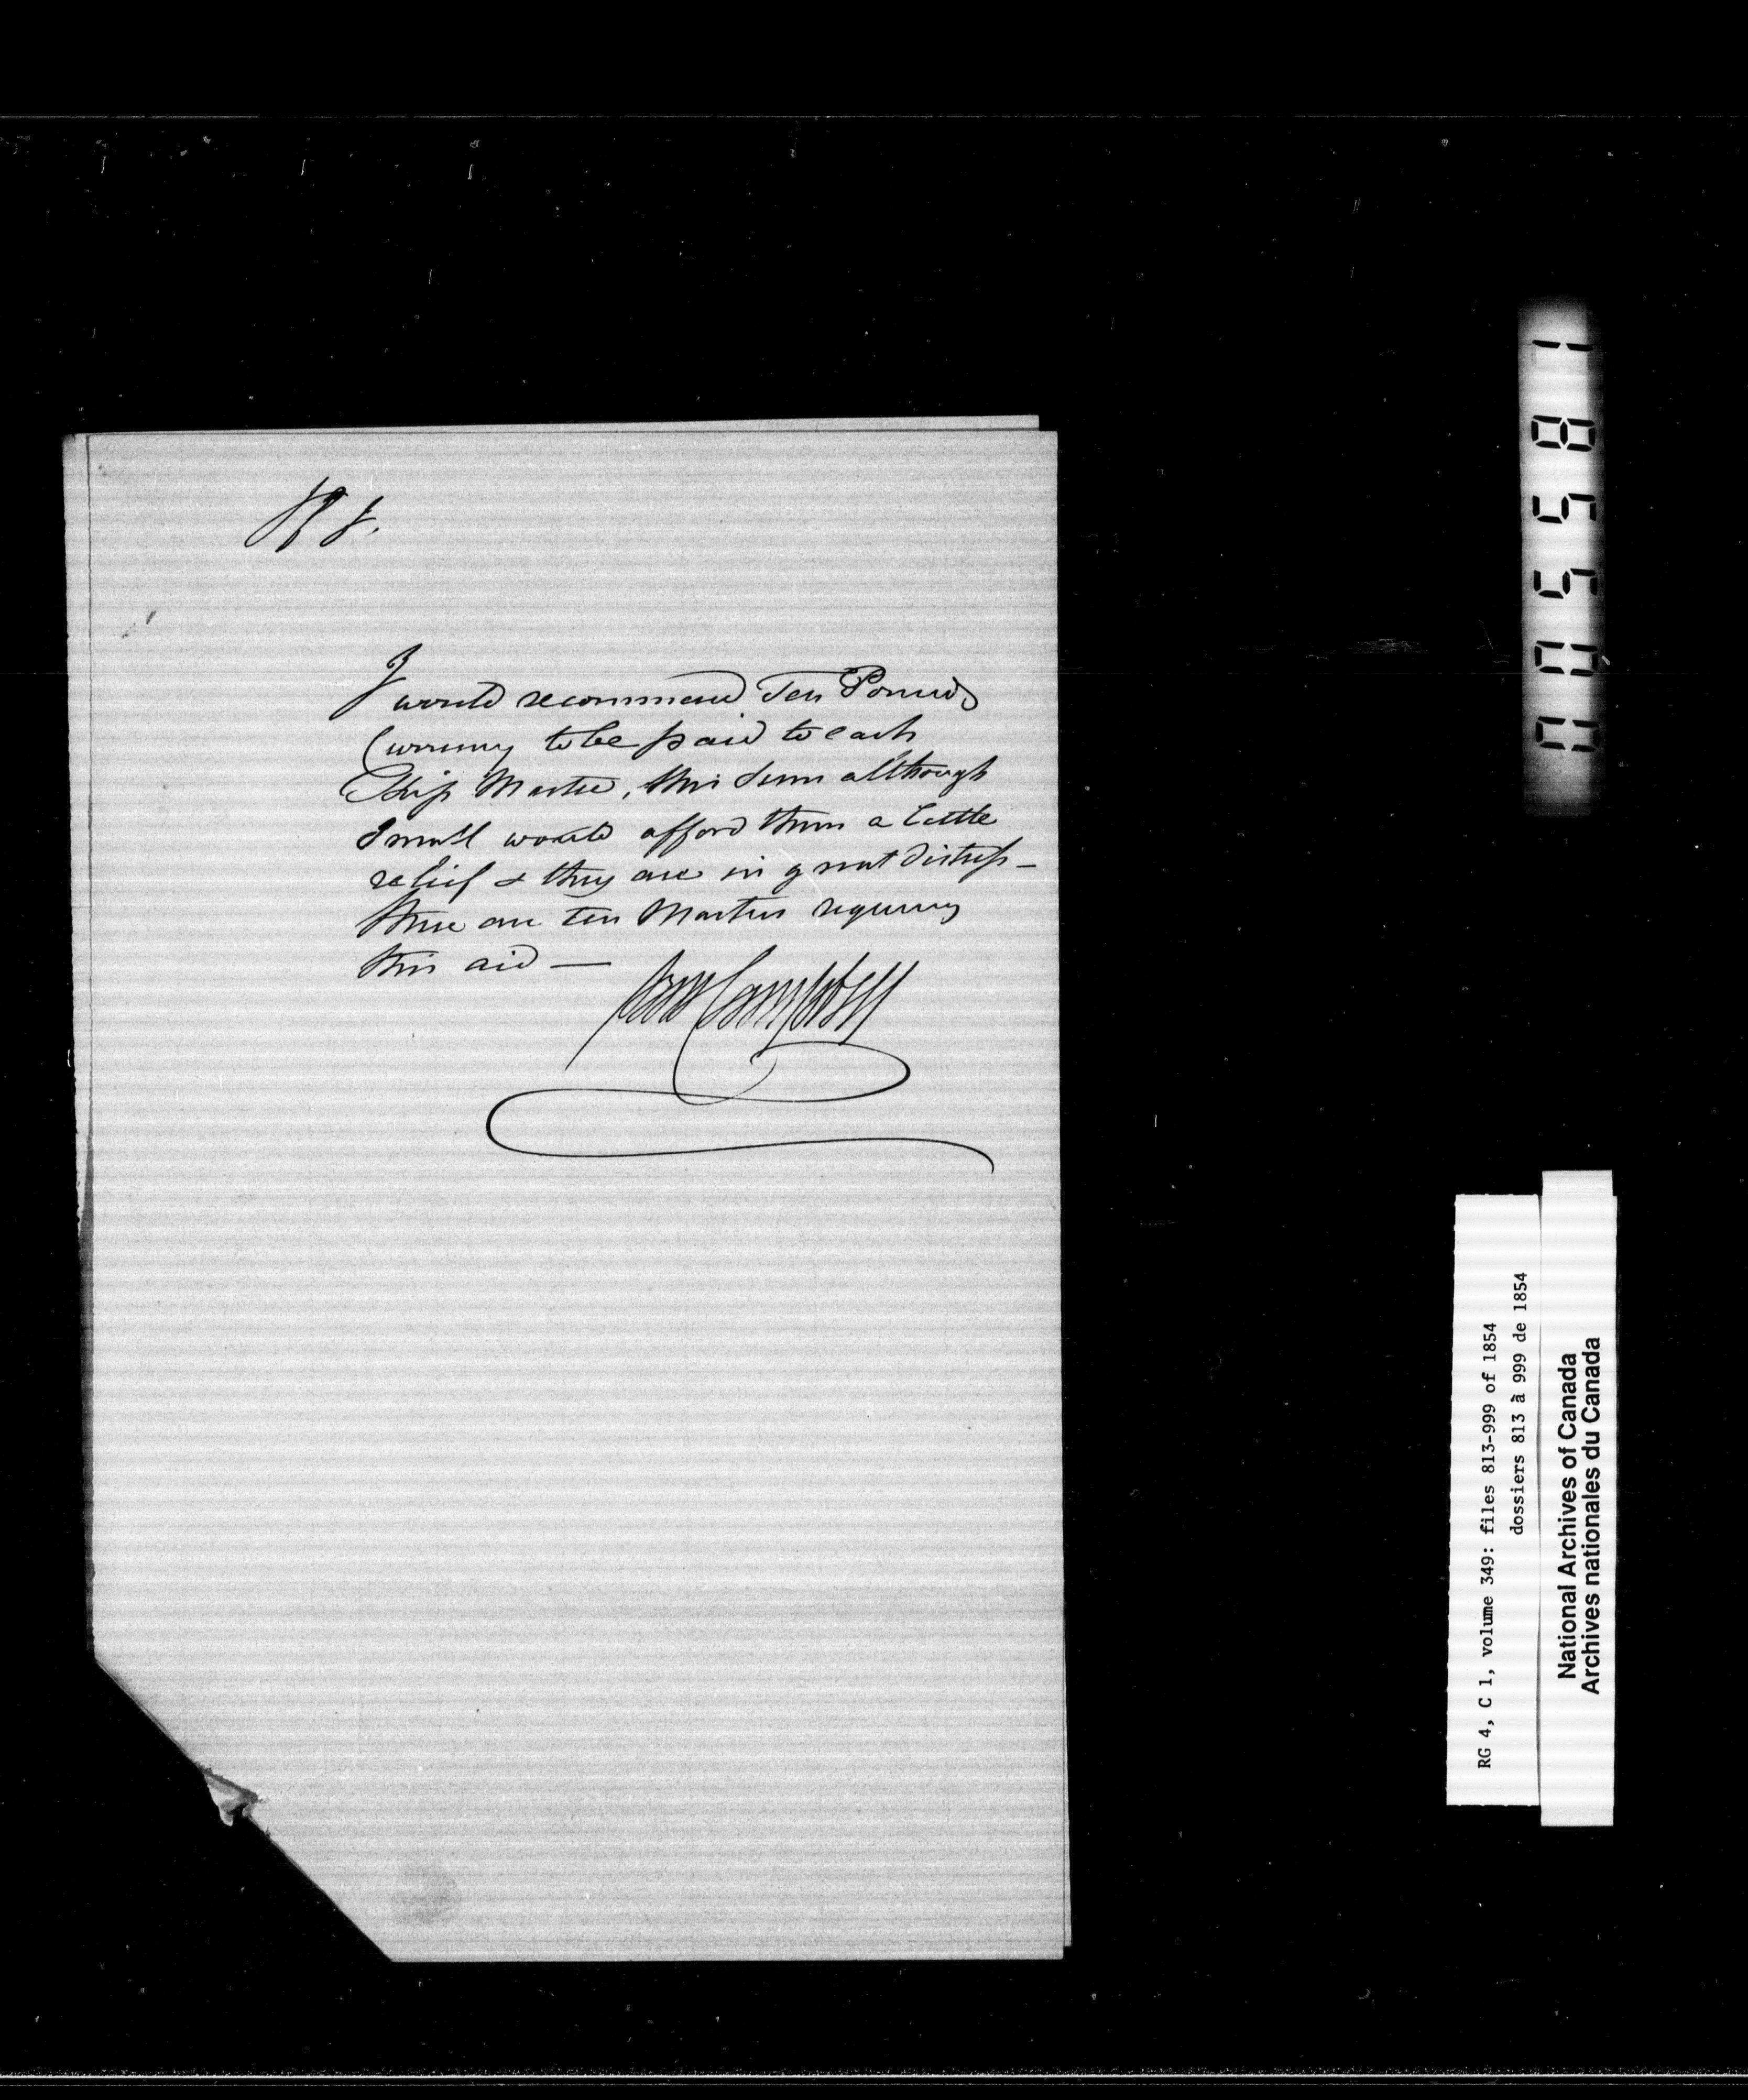 I would recommend Ten Pounds
Currency to be paid to each
Ship Master, this Sum although
Small would afford them a little
relief & they are in great distress –
there are ten Masters requiring
this aid —
Campbell
185500
RG 4, C 1, volume 349: files 813-999 of 1854
dossiers 813 à 999 de 1854
National Archives of Canada
Archives nationales du Canada